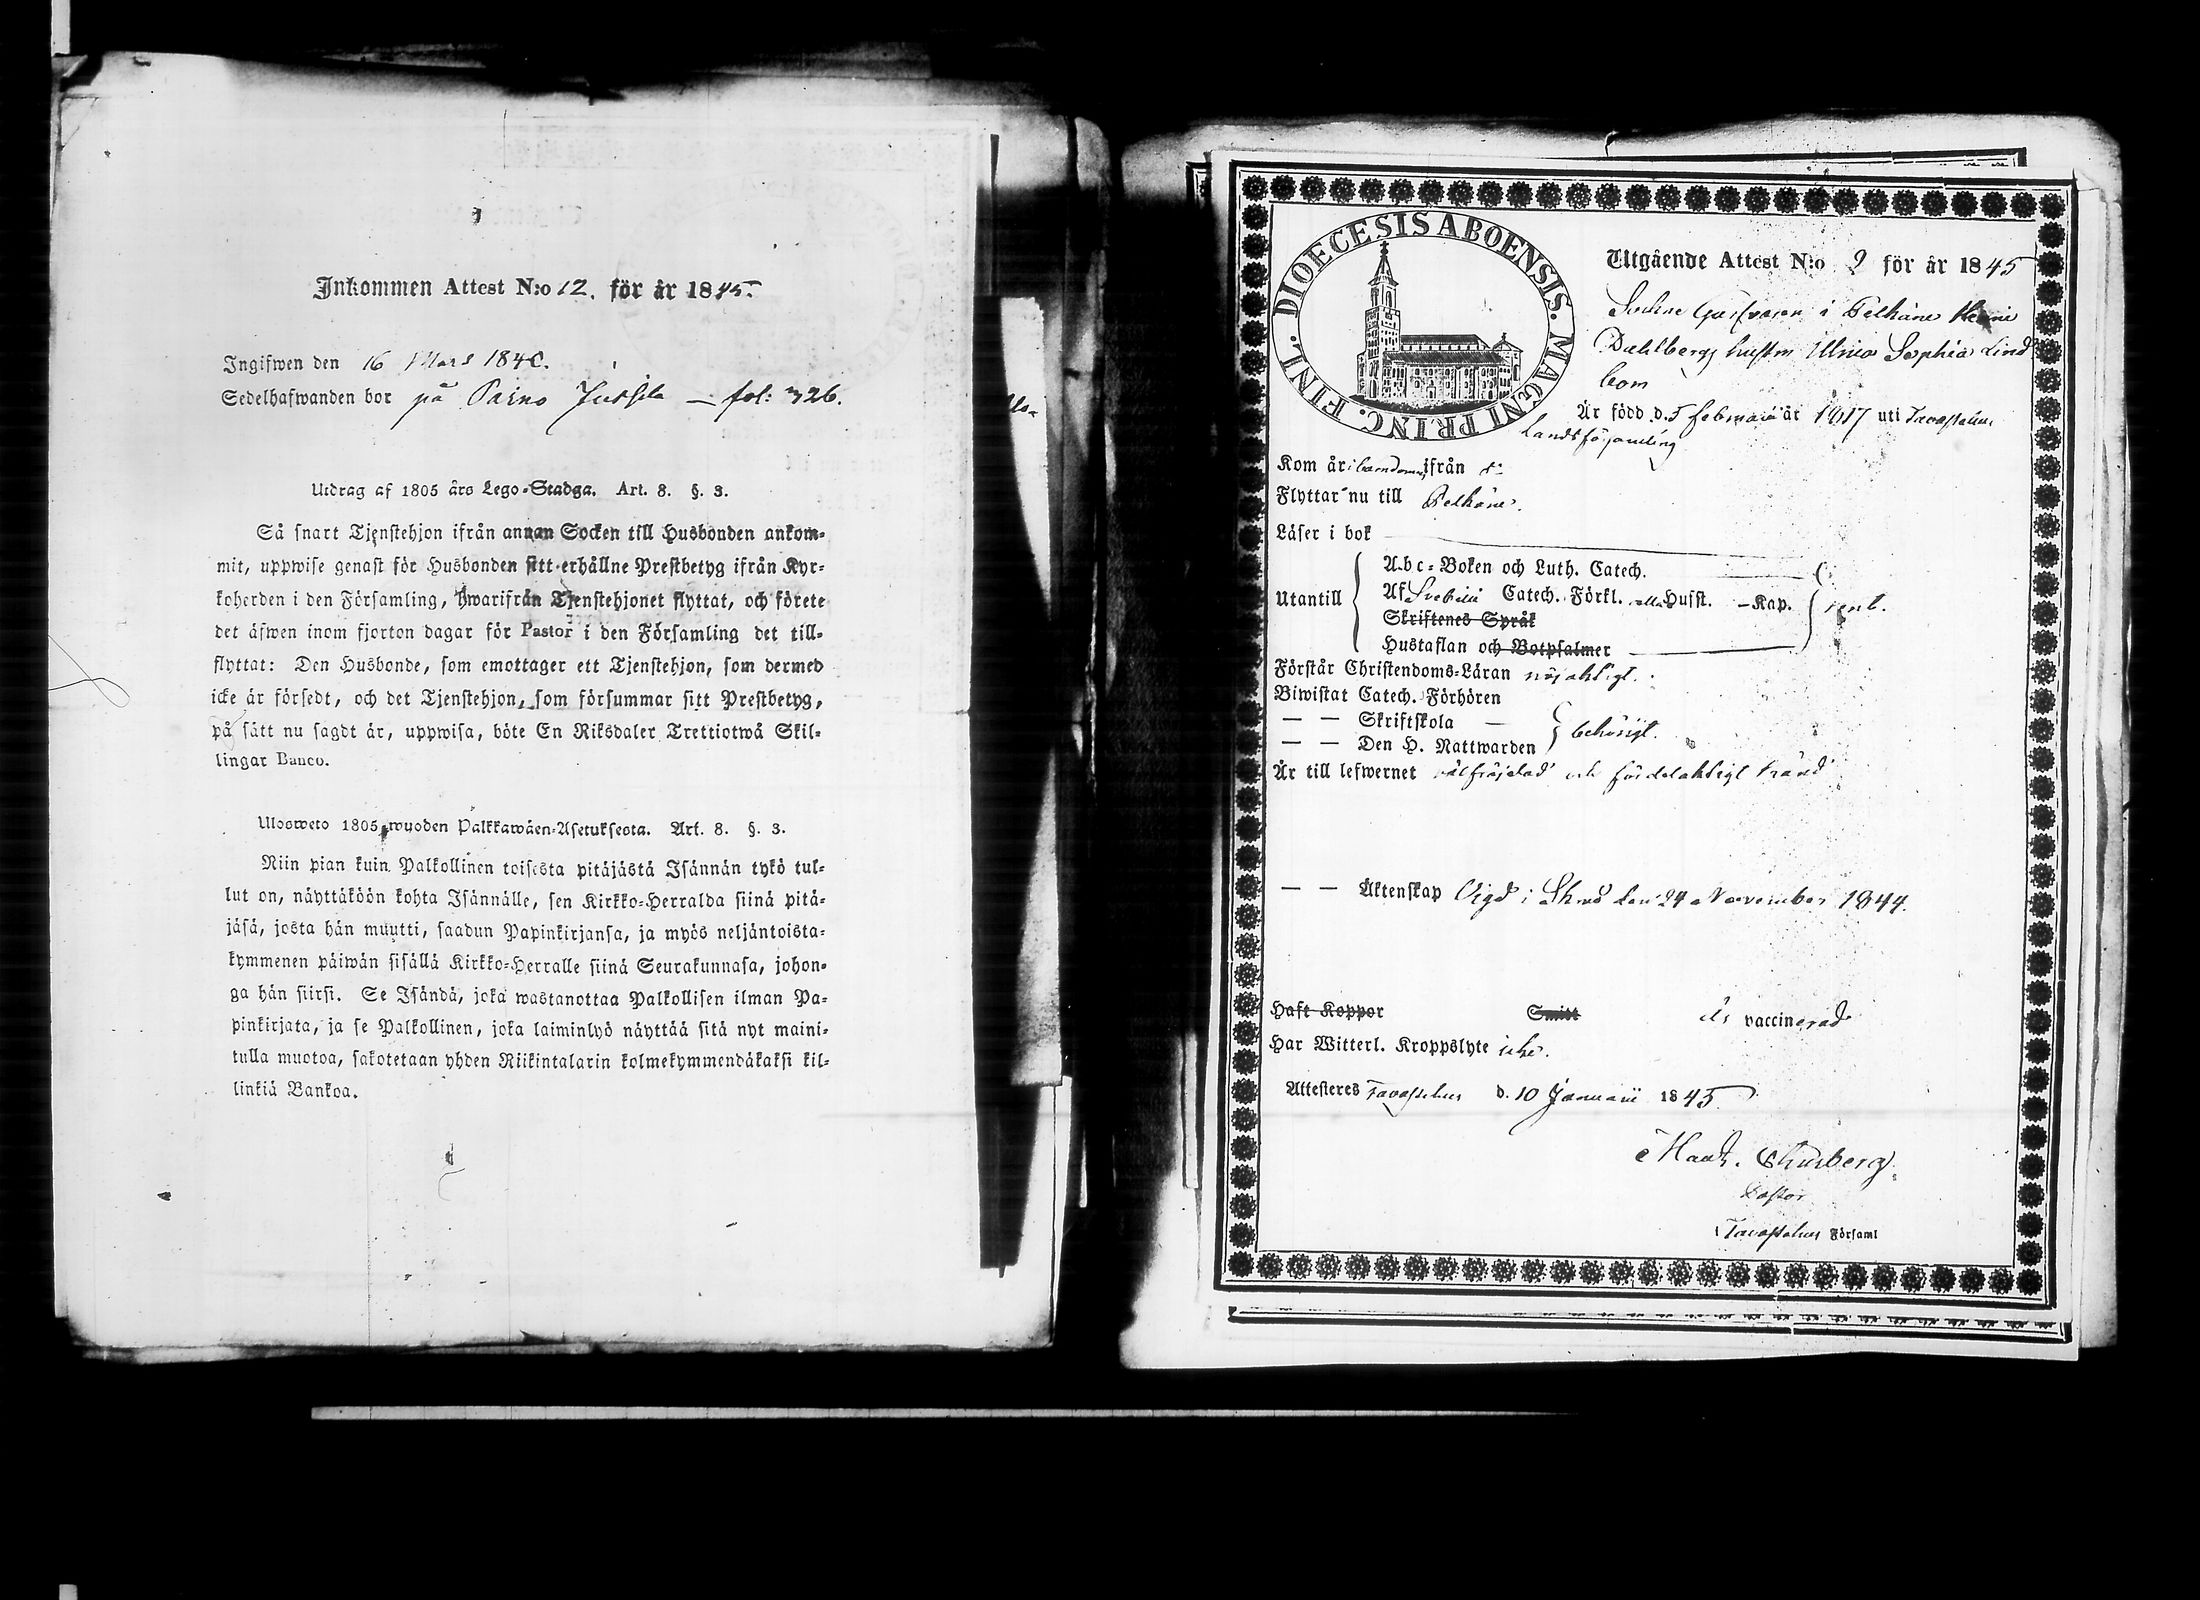 Inkommen Attest N:o 12. för år 1845.
Ingifwen den 16 Mars 184
Sedelhafwanden bor på Paino Jussila — fol: 326.
Utdrag af 1805 års Lego-Stadga. Art. 8. §. 3.
Så snart Tjenstehjon ifrån annan Socken till Husbonden ankom-
mit, uppwise genast för Husbonden sitt erhållne Prestbetyg ifrån Kyr-
koherden i den Församling, hwarifrån Tjenstehjonet flyttat, och förete
det äfwen inom fjorton dagar för Pastor i den Församling det till-
flyttat: Den Husbonde, som emottager ett Tjenstehjon, som dermed
icke är försedt, och det Tjenstehjon, som försummar sitt Prestbetyg,
på sätt nu sagdt är, uppwisa, böte En Riksdaler Trettiotwå Skil-
lingar Banco.
Ulosweto 1805 wuoden Palkkawäen-Asetuksesta. Art. 8. §. 3.
Niin pian kuin Palkollinen toisesta pitäjästä Isännän tykö tul-
lut on, näyttäköön kohta Isännälle, sen Kirkko-Herralda siinä pitä-
jäsä, josta hän muutti, saadun Papinkirjansa, ja myös neljäntoista-
kymmenen päiwän sisällä Kirkko-Herralle siinä Seurakunnasa, johon-
ga hän siirsi. Se Isändä, joka wastanottaa Palkollisen ilman Pa-
pinkirjata, ja se Palkollinen, joka laiminlyö näyttää sitä nyt maini-
tulla muotoa, sakotetaan yhden Riikintalarin kolmekymmendäkaksi kil-
linkiä Bankoa.
DIOECESIS ABOENSIS. MAGNI PRINC. FINL.
Utgående Attest N:o 9 för år 1845
i Pelkäne
Dahlbergs hustru Ulrica Sophia Lind
bom
Är född d. 5 Februari år 1817 uti Tavastehus
Landsförsamling
Kom år i barndomen ifrån
Flyttar nu till Pelkäne.
Läser i bok
Utantill
A-b-c-Boken och Luth. Catech.
Af Svebilii Catech. Förkl. Husst. – Kap.
Skriftenes Språk
Hustaflan och Botpsalmer
rent.
Förstår Christendoms-Läran nöjaktligt.
Biwistat Catech. Förhören
— — Skriftskola —
— — Den H. Nattwarden
behörigt.
Är till lefwernet välfräjdad och fördelaktligt känd
— — Äktenskap Vigd i Stånd den 24 November 1844.
Haft Koppor Smitt är vaccinerad
Har Witterl. Kroppslyte icke.
Attesteres Tavastehus d. 10 Januarii 1845
Pastor
Tavastehus Församl